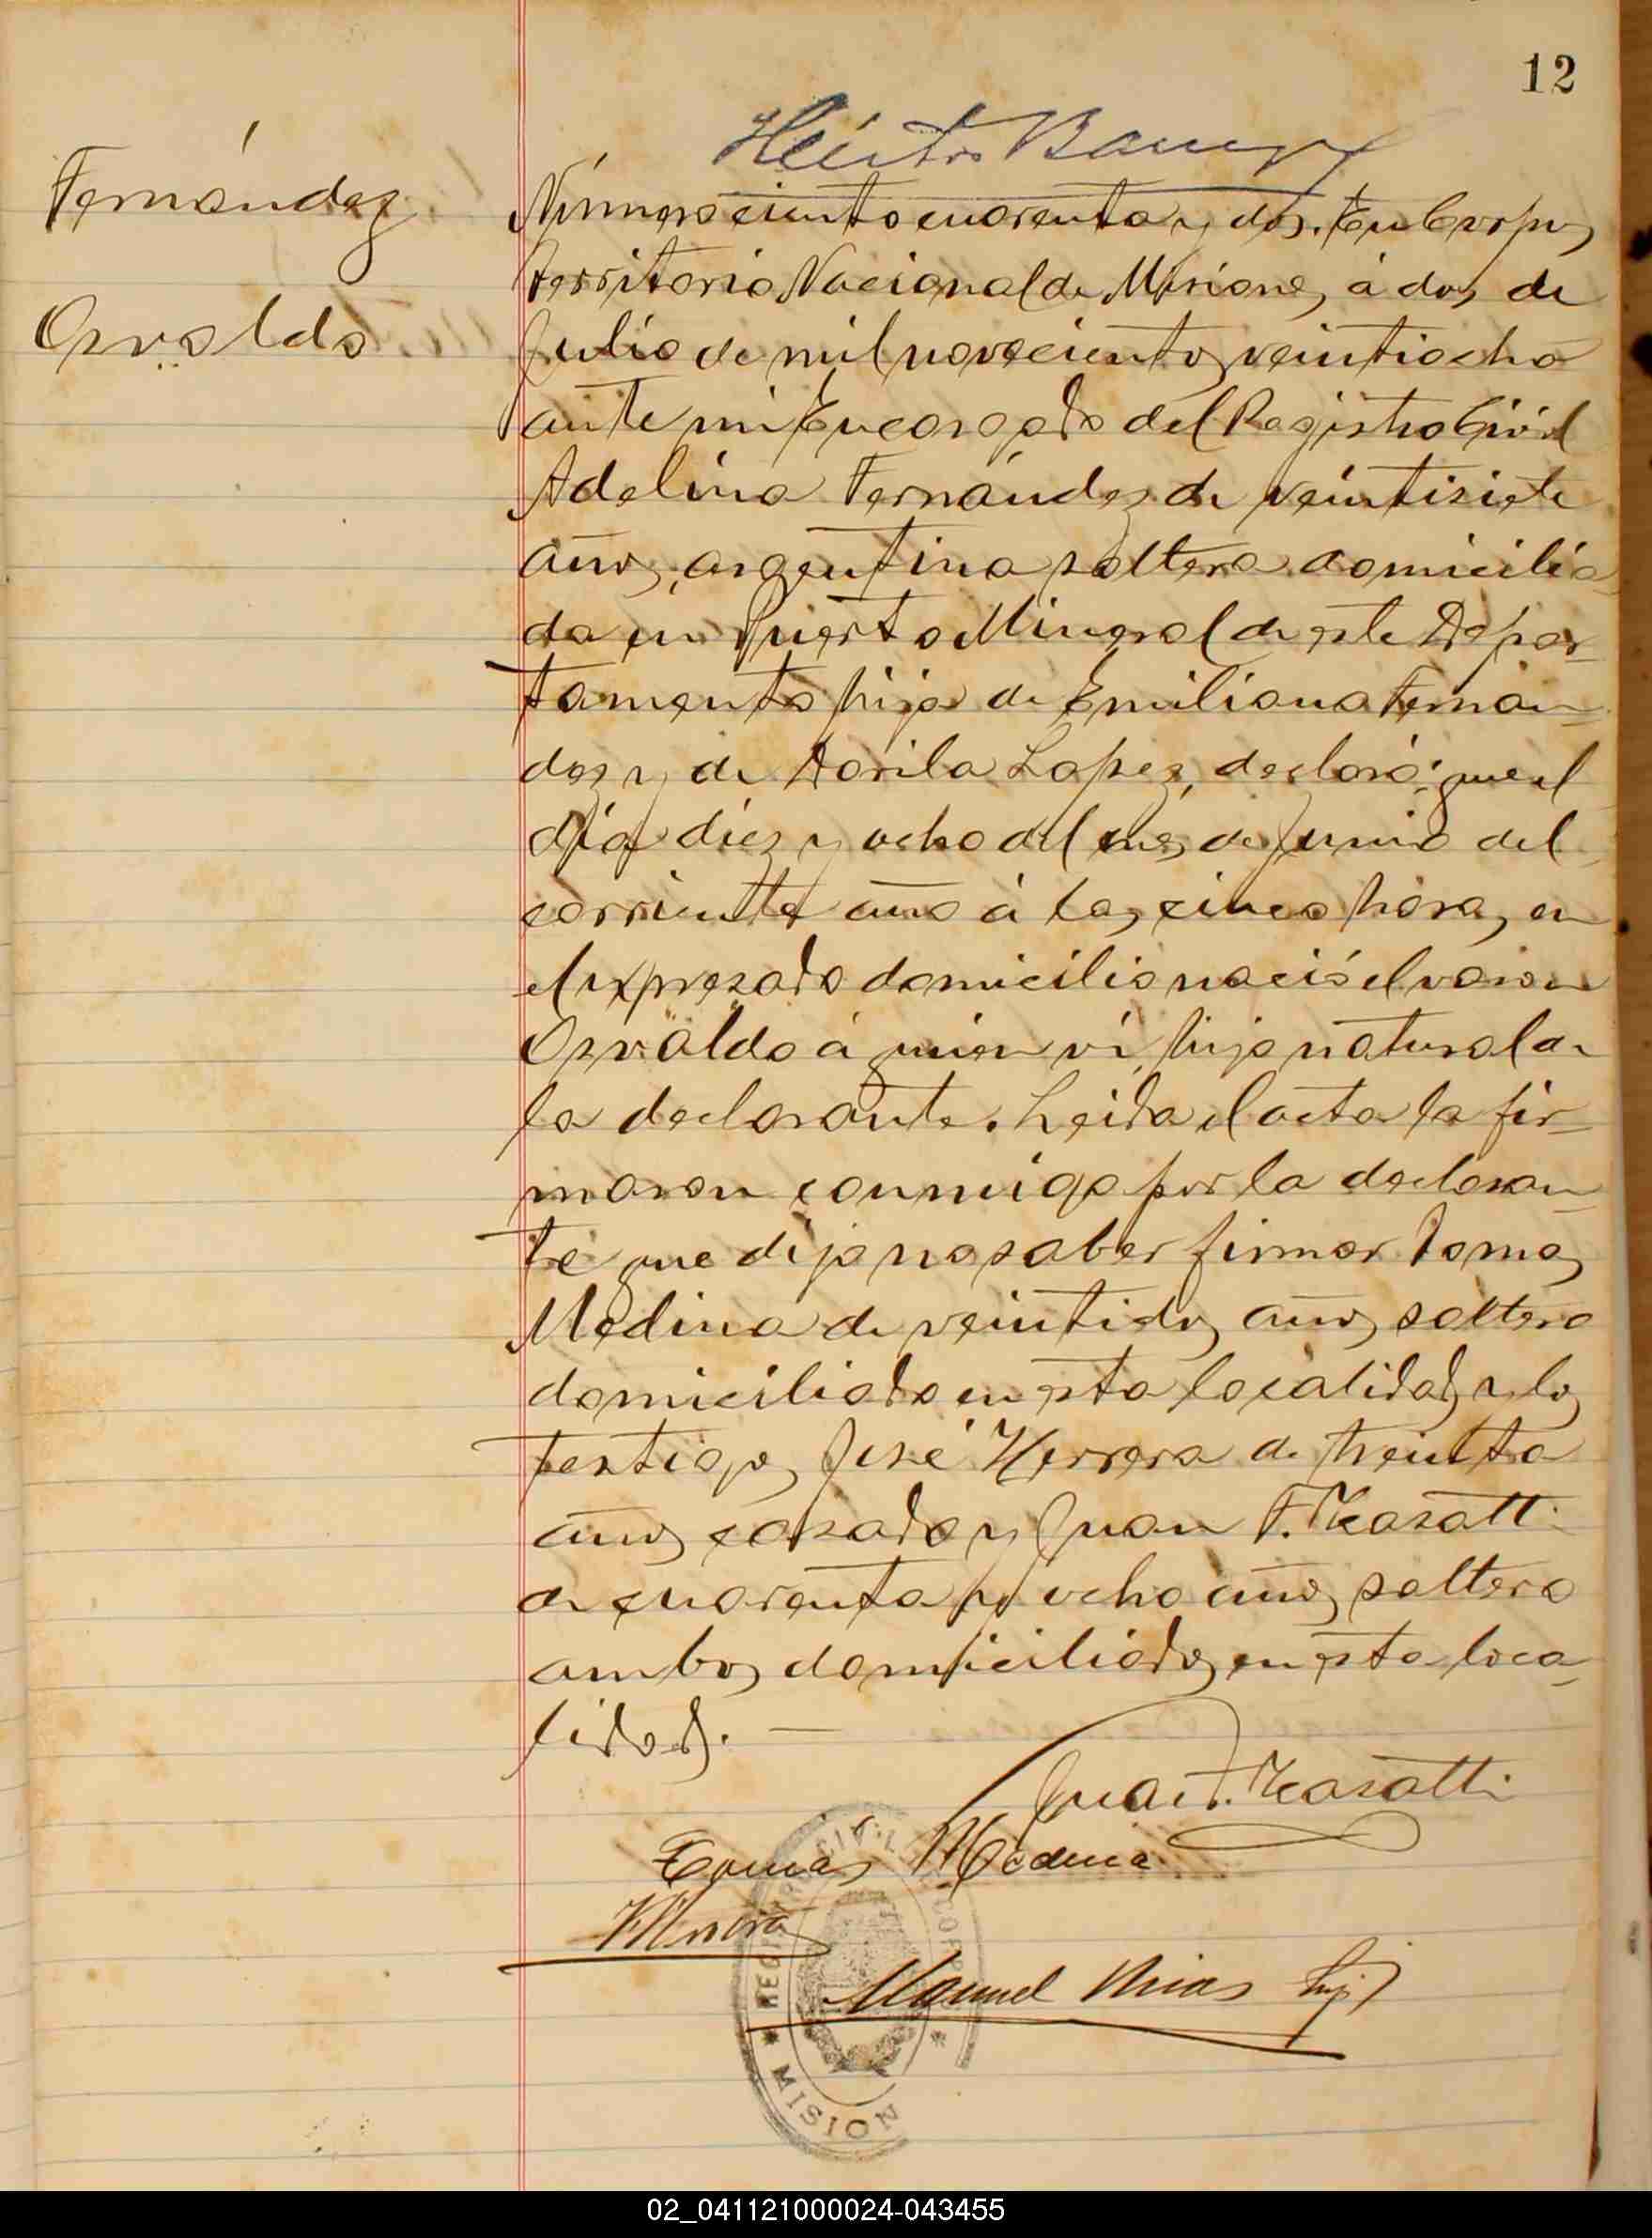 12
Fernández
Osvaldo
Héctor
Número ciento cuarenta y dos. En Corpus
Territorio Nacional de Misiones, á dos de
Julio de mil novecientos veintiocho
ante mi Encargado del Registro Civil
Adelina Fernández de veintisiete
años, argentina soltera domicilia
da en Puerto Mineral de este Depar-
tamento hija de Emiliano Fernan-
dez y de Dorila Lopez, declaró: que el
día diez y ocho del mes de Junio del
corriente año á las cinco horas, en
el expresado domicilio nació el varon
Osvaldo á quien vi, hijo natural de
la declarante. Leida el acta la fir-
maron conmigo por la declaran-
te que dijo no saber firmar Tomas
Medina de veintidos años soltero
domiciliado en esta localidad y los
testigos José Herrera de treinta
años casado y Juan F. Kasatti
de cuarenta y ocho años soltero
ambos domiciliados en esta loca-
lidad. —
Juan F. Kasatti
Tomás Medina
Manuel hijo
REGISTRO CIVIL CORP
* MISION *
02_041121000024-043455